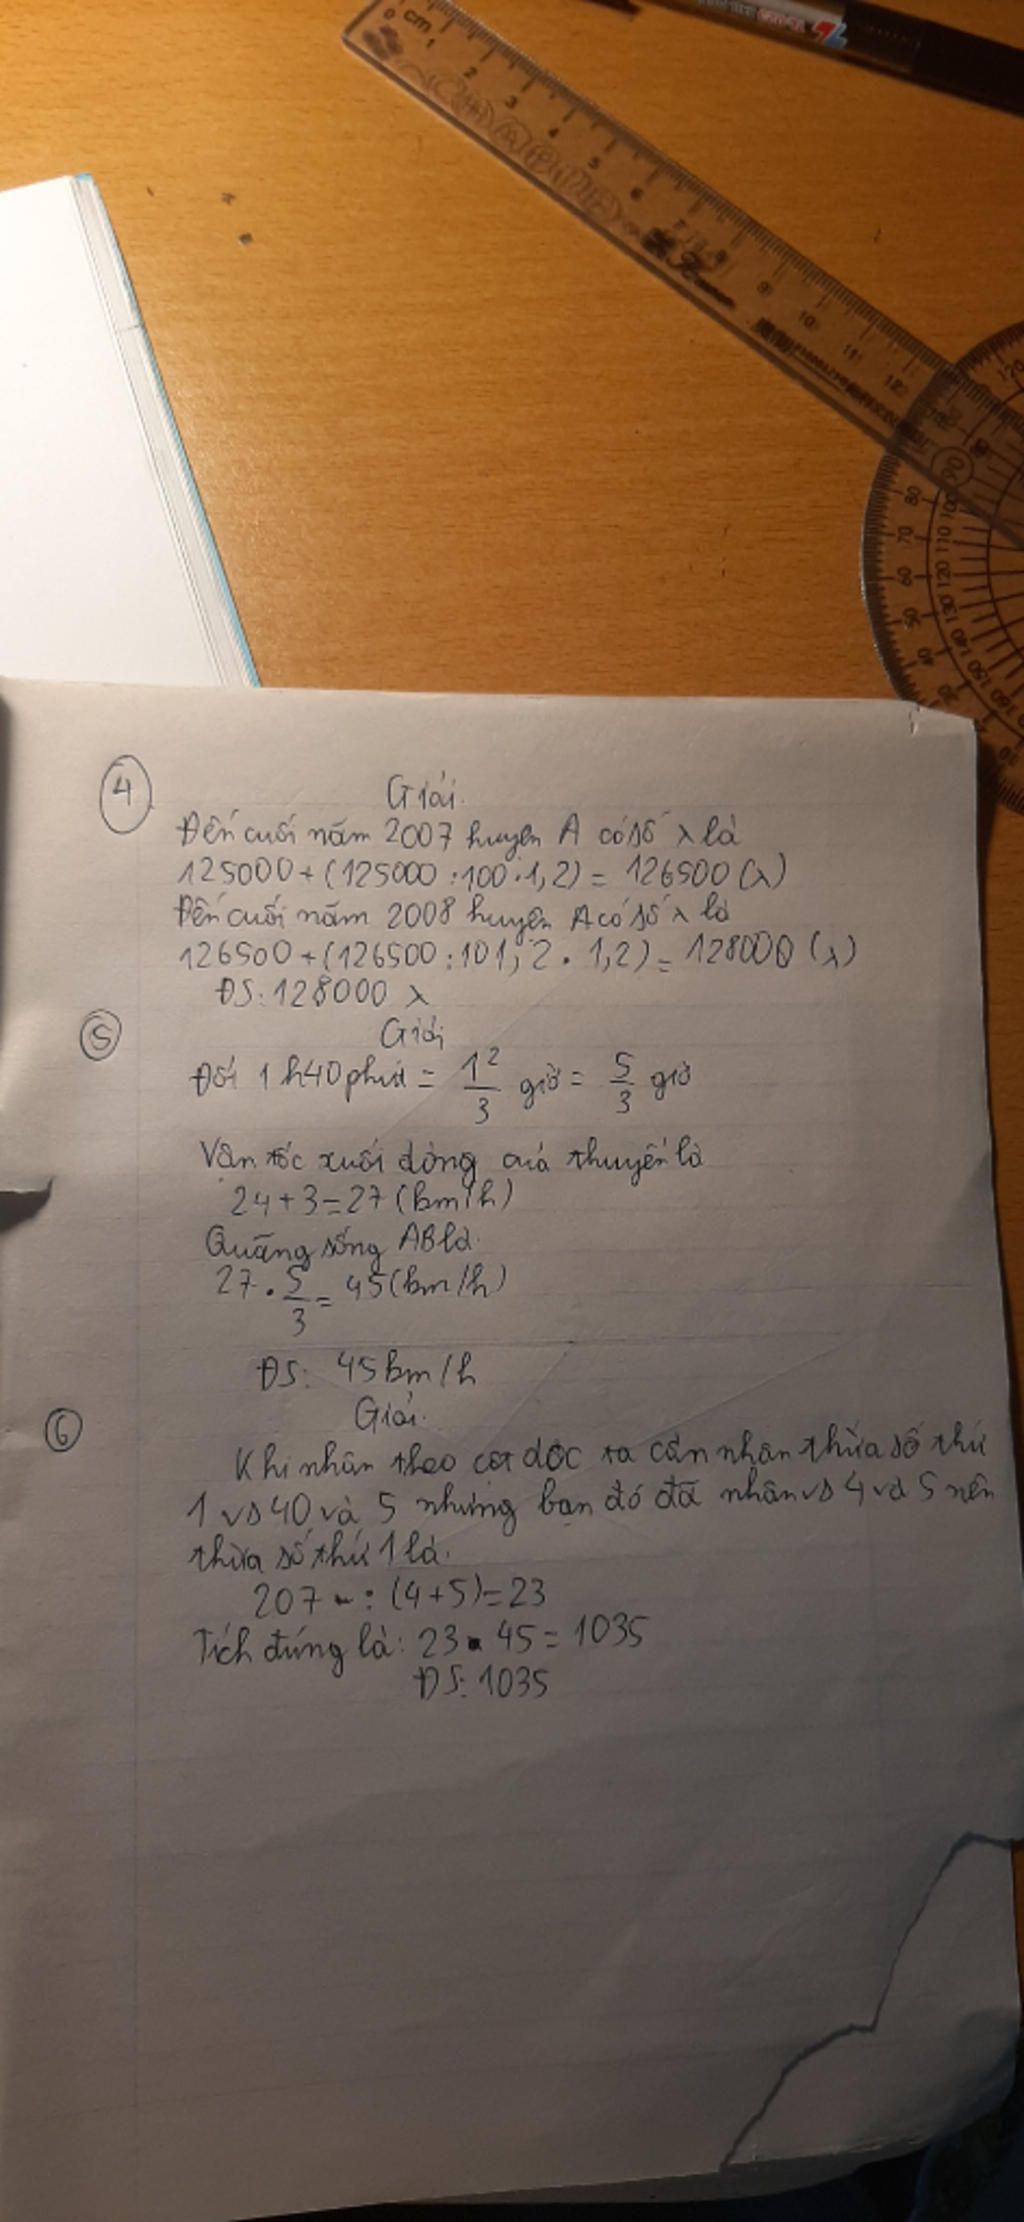 4
Giải.
Đến cuối năm 2007 huyện A có số λ là
125000+(125000:100.1,2)=126500(λ)
Đến cuối năm 2008 huyện A có số λ là
126500+(126500:101,2.1,2)=128000(λ)
ĐS:128000 λ
5
Giải
Đổi 1h40phút = 1 2/3 giờ = 5/3 giờ
Vận tốc xuôi dòng của thuyền là
24+3=27(km/h)
Quãng sông AB là.
27.5/3=45(km/h)
ĐS: 45km/h
6
Giải.
Khi nhân theo cột dọc ta cần nhân thừa số thứ
1 vs 40 và 5 nhưng bạn đó đã nhân vs 4 và 5 nên
thừa số thứ 1 là.
207:(4+5)=23
Tích đúng là: 23.45=1035
ĐS:1035
cm
0 1 2 3 4 5 6 7 8 9 10 11 12
120
90
80 100
70 110
60 120
50 130
40 140
150
160